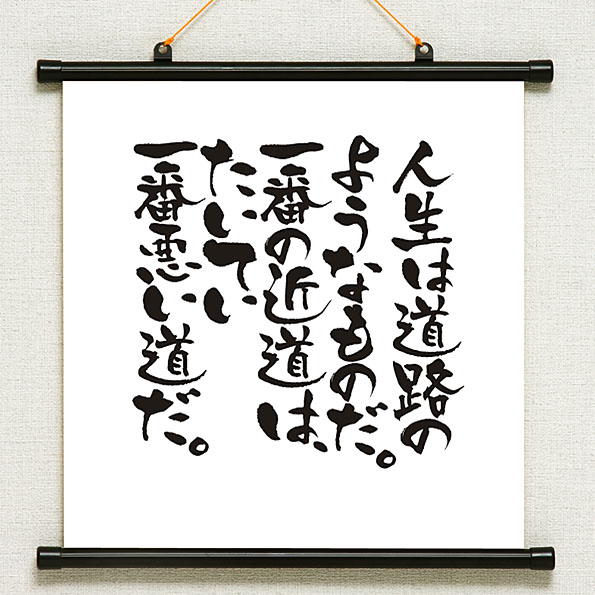 人生は道路の
ようなものだ。
一番の近道は、
たいてい
一番悪い道だ。